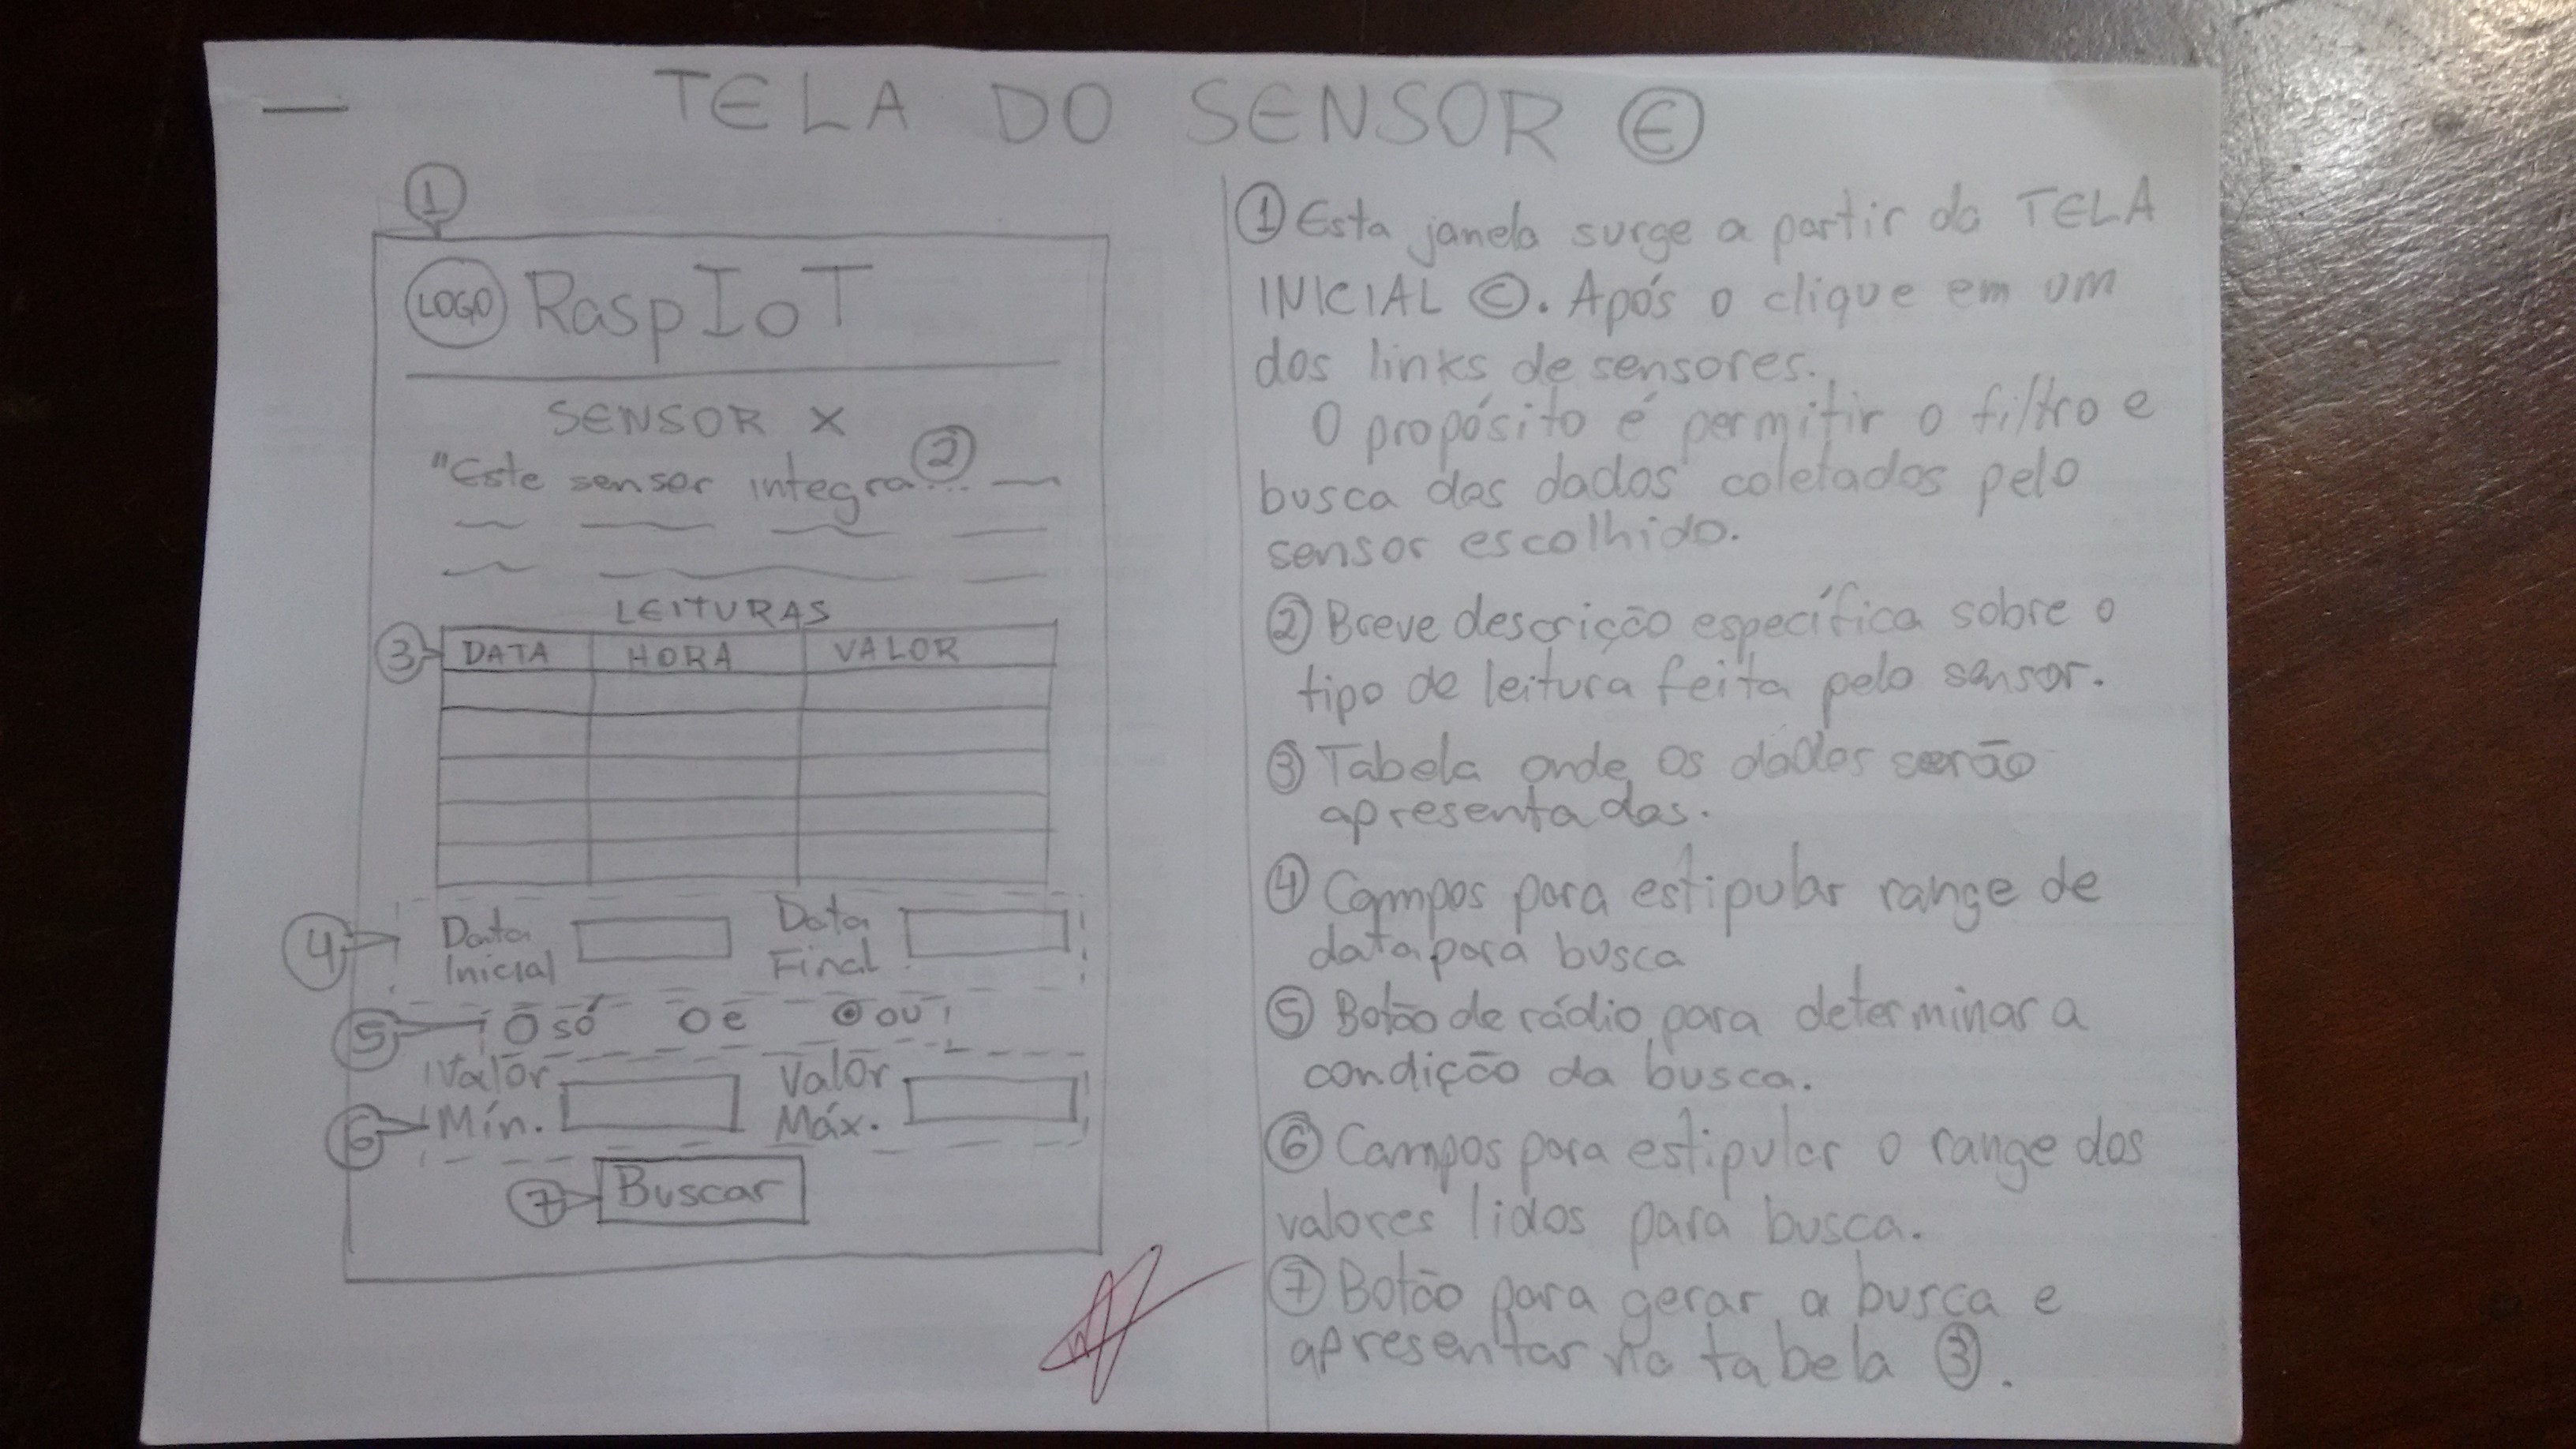 TELA DO SENSOR Ⓔ
①
LOGO RaspIoT
SENSOR X
"Este sensor integra... ②
LEITURAS
③ DATA HORA VALOR
④ Data Inicial Data Final
⑤ só e ou
⑥ Valor Mín. Valor Máx.
⑦ Buscar
① Esta janela surge a partir da TELA
INICIAL Ⓒ. Após o clique em um
dos links de sensores.
O propósito é permitir o filtro e
busca dos dados coletados pelo
sensor escolhido.
② Breve descrição específica sobre o
tipo de leitura feita pelo sensor.
③ Tabela onde os dados serão
apresentados.
④ Campos para estipular range de
data para busca
⑤ Botão de rádio para determinar a
condição da busca.
⑥ Campos para estipular o range dos
valores lidos para busca.
⑦ Botão para gerar a busca e
apresentar na tabela ③.